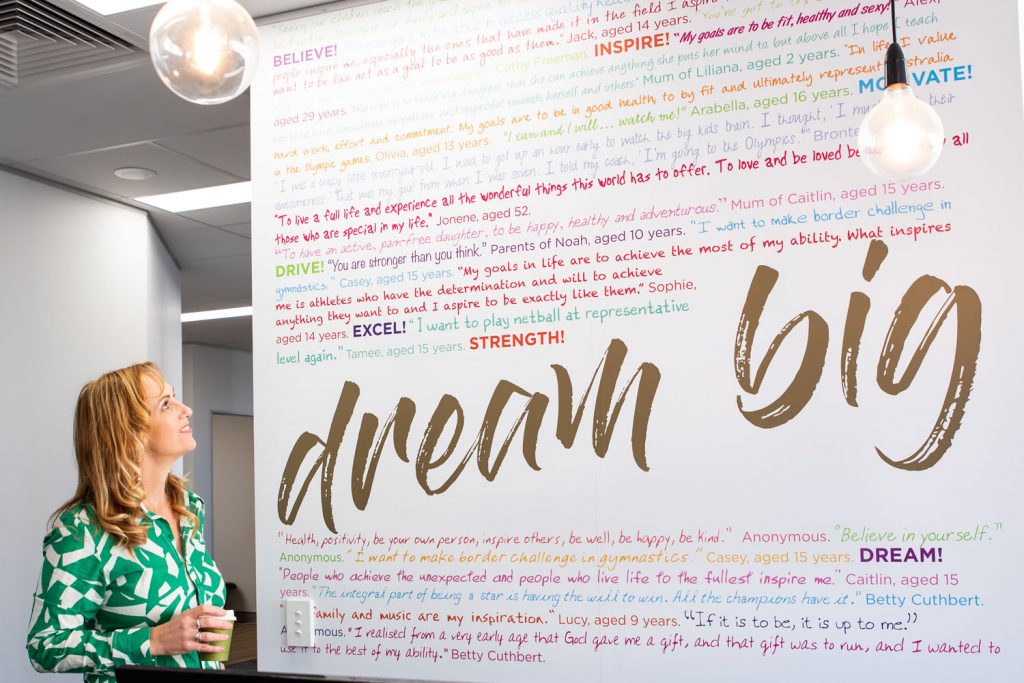 BELIEVE!
people inspire me, especially the ones that have made it in the field I aspire
want to be like act as a goal to be as good as them." Jack, aged 14 years. INSPIRE! "My goals are to be fit, healthy and sexy!" Alex,
Cathy Freeman.
aged 29 years. "My hope is to teach my daughter that she can achieve anything she puts her mind to, but above all I hope I teach
her to be kind, considerate, empathetic and respectful towards herself and others." Mum of Liliana, aged 2 years. "In life I value
hard work, effort and commitment. My goals are to be in good health, to by fit and ultimately represent Australia
in the Olympic games. Olivia, aged 13 years. "I can and I will... watch me!" Arabella, aged 16 years. MOTIVATE!
'I was a crazy little seven-year-old. I used to get up an hour early to watch the big kids train. I thought, 'I must their
awesomeness. That was my goal from when I was seven. I told my coach, 'I'm going to the Olympics.'" Bronte
"To live a full life and experience all the wonderful things this world has to offer. To love and be loved by all
those who are special in my life." Jonene, aged 52.
"To have an active, pain-free daughter, to be happy, healthy and adventurous." Mum of Caitlin, aged 15 years.
DRIVE! "You are stronger than you think." Parents of Noah, aged 10 years. "I want to make border challenge in
gymnastics." Casey, aged 15 years. "My goals in life are to achieve the most of my ability. What inspires
me is athletes who have the determination and will to achieve
anything they want to and I aspire to be exactly like them." Sophie,
aged 14 years. EXCEL! "I want to play netball at representative
level again." Tamee, aged 15 years. STRENGTH!
dream big
"Health, positivity, be your own person, inspire others, be well, be happy, be kind." Anonymous. "Believe in yourself."
Anonymous. "I want to make border challenge in gymnastics." Casey, aged 15 years. DREAM!
"People who achieve the unexpected and people who live life to the fullest inspire me." Caitlin, aged 15
years. "The integral part of being a star is having the will to win. All the champions have it." Betty Cuthbert.
family and music are my inspiration." Lucy, aged 9 years. "If it is to be, it is up to me."
"I realised from a very early age that God gave me a gift, and that gift was to run, and I wanted to
use it to the best of my ability." Betty Cuthbert.